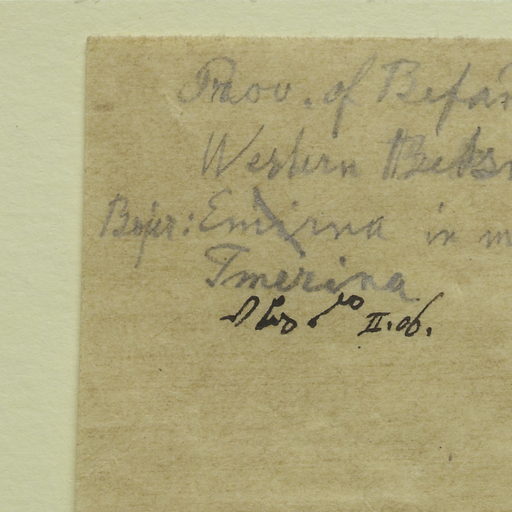 Prov. of Befa
Western Betsi
Bojer: Emirna in m
Imerina
II.06.